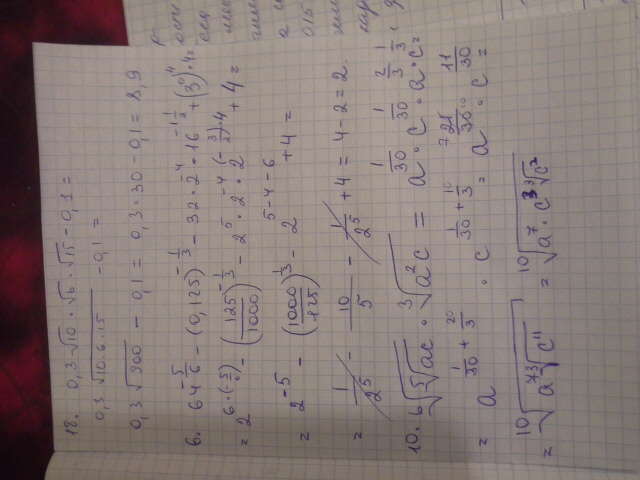 18. 0,3√10 · √6 · √15 - 0,1 =
0,3 √10·6·15 - 0,1 =
0,3√900 - 0,1 = 0,3·30 - 0,1 = 8,9
6. 64^(-5/6) - (0,125)^(-1/3) - 32·2^(-4)·16^(-1 1/2) + (3^0)^4·4 =
= 2^(6·(-5/6)) - (125/1000)^(-1/3) - 2^5·2^(-4)·2^((-3/2)·4) + 4 =
= 2^(-5) - (1000/125)^(1/3) - 2^(5-4-6) + 4 =
= 1/2^5 - 10/5 - 1/2^5 + 4 = 4-2 = 2.
10. ⁶√⁵√ac · ³√a²c = a^(1/30) · c^(1/30) · a^(2/3) · c^(1/3) =
= a^(1/30 + 20/3) · c^(1/30 + 10/3) = a^(7 21/30 10) · c^(11/30) =
= ¹⁰√a⁷ ³√c¹¹ = ¹⁰√a⁷·c³ ³√c²